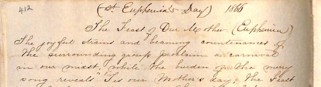 412 (St Euphemia's Day) 1868
The Feast of Our Mother (Euphemia)
The joyful strains and beaming countenances of
the surrounding group proclaim a carnival
in our midst, while the burden of the merry
song reveals 'tis our Mother's day, the Feast